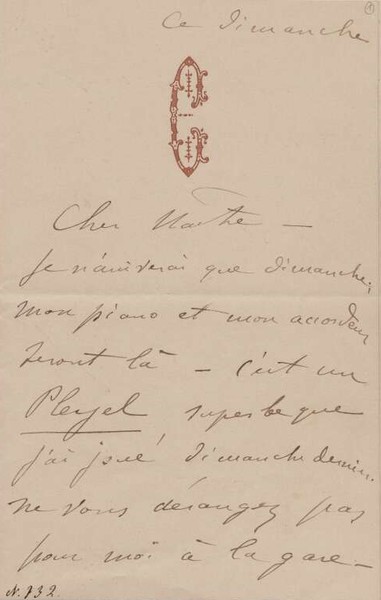 Ce Dimanche
Cher Maître —
je n'arriverai que dimanche,
mon piano et mon accordeur
seront là — c'est un
Pleyel superbe que
j'ai joué dimanche dernier.
ne vous dérangez pas
pour moi à la gare —
N. 132.